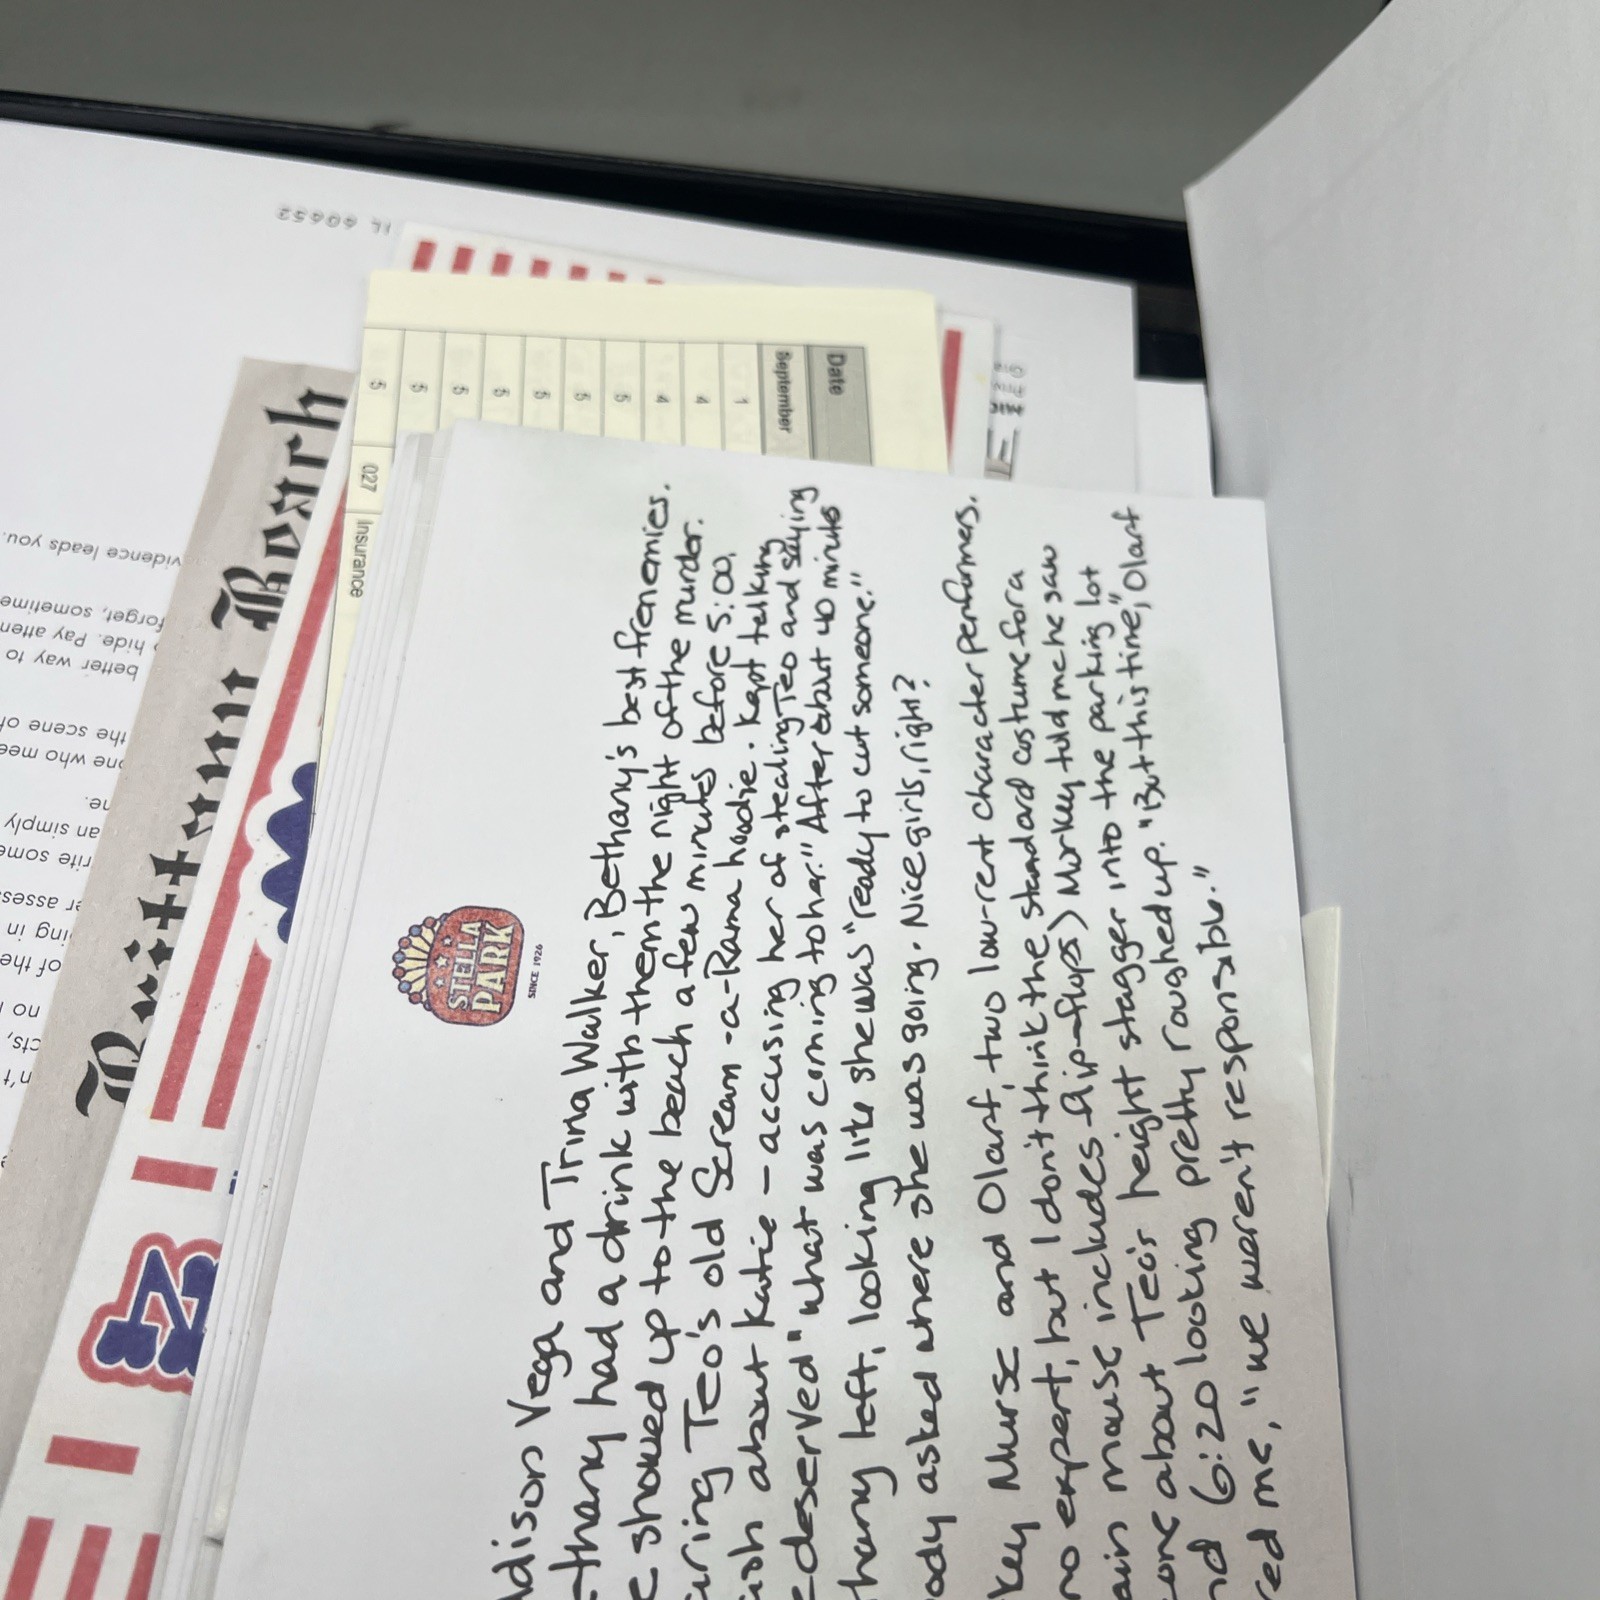 STELLA
PARK
SINCE 1926
ddison Vega and Trina Walker, Bethany's best frenemies.
ethany had a drink with them the night of the murder.
e showed up to the beach a few minutes before 5:00,
uring Teo's old Scream-a-Rama hoodie. Kept talking
ish about Katie – accusing her of stealing Teo and saying
e deserved "what was coming to her." After about 40 minutes
thany left, looking like she was "ready to cut someone."
ody asked where she was going. Nice girls, right?
key Nurse and Olarf, two low-rent character performers.
no expert, but I don't think the standard costume for a
ain mouse includes flip-flops) Murkey told me he saw
eone about Teo's height stagger into the parking lot
nd 6:20 looking pretty roughed up. "But this time," Olarf
red me, "we weren't responsible."
Date
September
1
4
4
5
5
5
5
5
5
5
027
Insurance
Brittany Beach
IL 60652
vidence leads you.
forget, sometime
hide. Pay atten
better way to
the scene of
one who mee
ne.
an simply
rite some
er assess
ping in
of the
no
cts,
n't